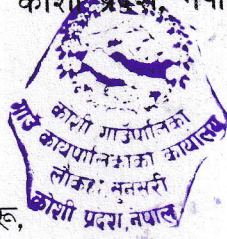 कोशी प्रदेश, नेपा
कोशी गाउँपालिका
गाउँ कार्यपालिकाको कार्यालय
लौकही, सुनसरी
कोशी प्रदेश, नेपाल
रू,